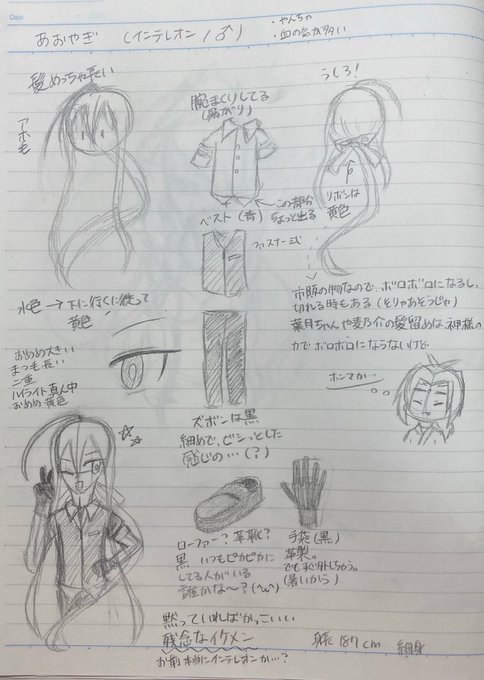 Date
あおやぎ (インテレオン/♂)
・やんちゃ
・血の気が多い
髪めっちゃ長い
アホ毛
腕まくりしてる
(暑がり)
うしろ!
この部分
ちょっと出る
リボンは
黄色
ベスト(青)
ファスナー式
市販の物なので、ボロボロになるし
切れる時もある(そりゃあそうじゃ)
葉月ちゃんや麦乃介の髪留めは神様の
力でボロボロにならないけど
ホンマか…
水色→下に行くに従って
黄色
おめめ大きい
まつ毛長い
二重
ハイライト真ん中
おめめ黄色
ズボンは黒
細めで、ビシっとした
感じの…(?)
ローファー?革靴?
黒 いつもピカピカに
してる人がいる
誰かな〜?
手袋(黒)
革製。
でもすぐ外しちゃう。
(暑いから)
黙っていればかっこいい
残念なイケメン
お前本当にインテレオンか…?
身長 187cm 細身